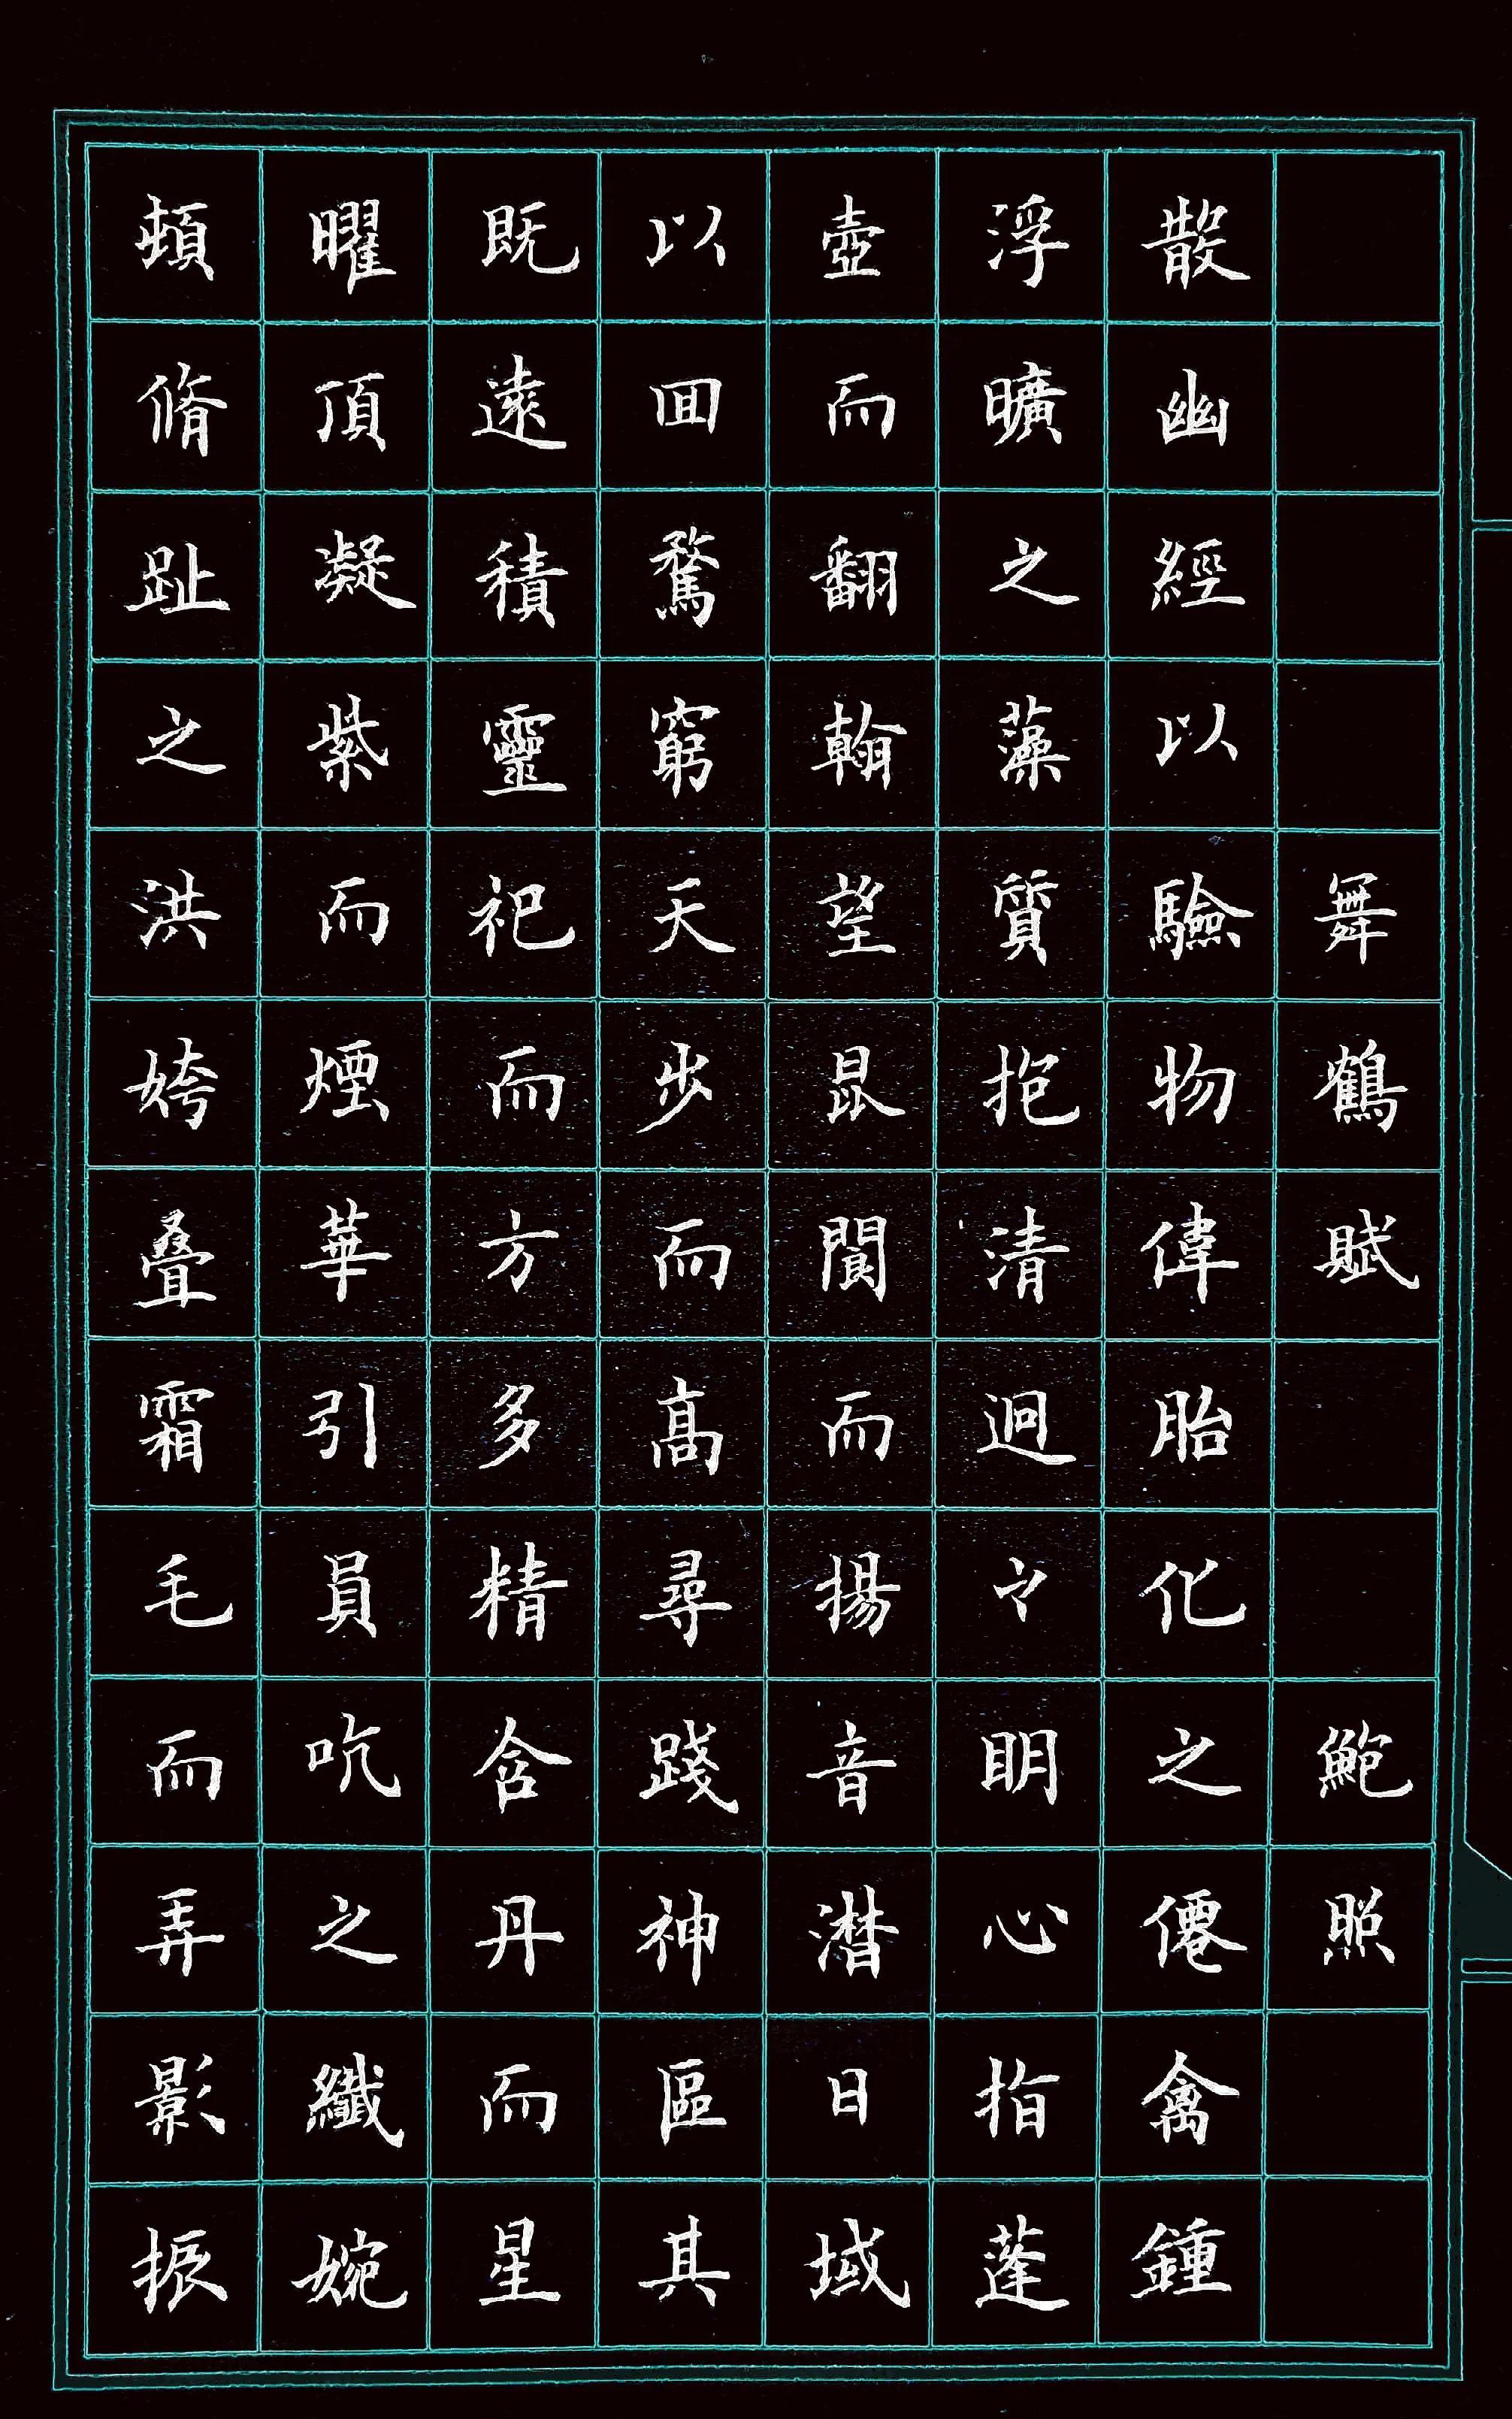 舞鶴賦 鮑照
散幽經以驗物偉胎化之僊禽鍾
浮曠之藻質抱清迥之明心指蓬
壺而翻翰望昆閬而揚音潛日域
以回騖窮天步而高尋踐神區其
既遠積靈祀而方多精含丹而星
曜頂凝紫而煙華引員吭之纖婉
頓脩趾之洪姱疊霜毛而弄影振